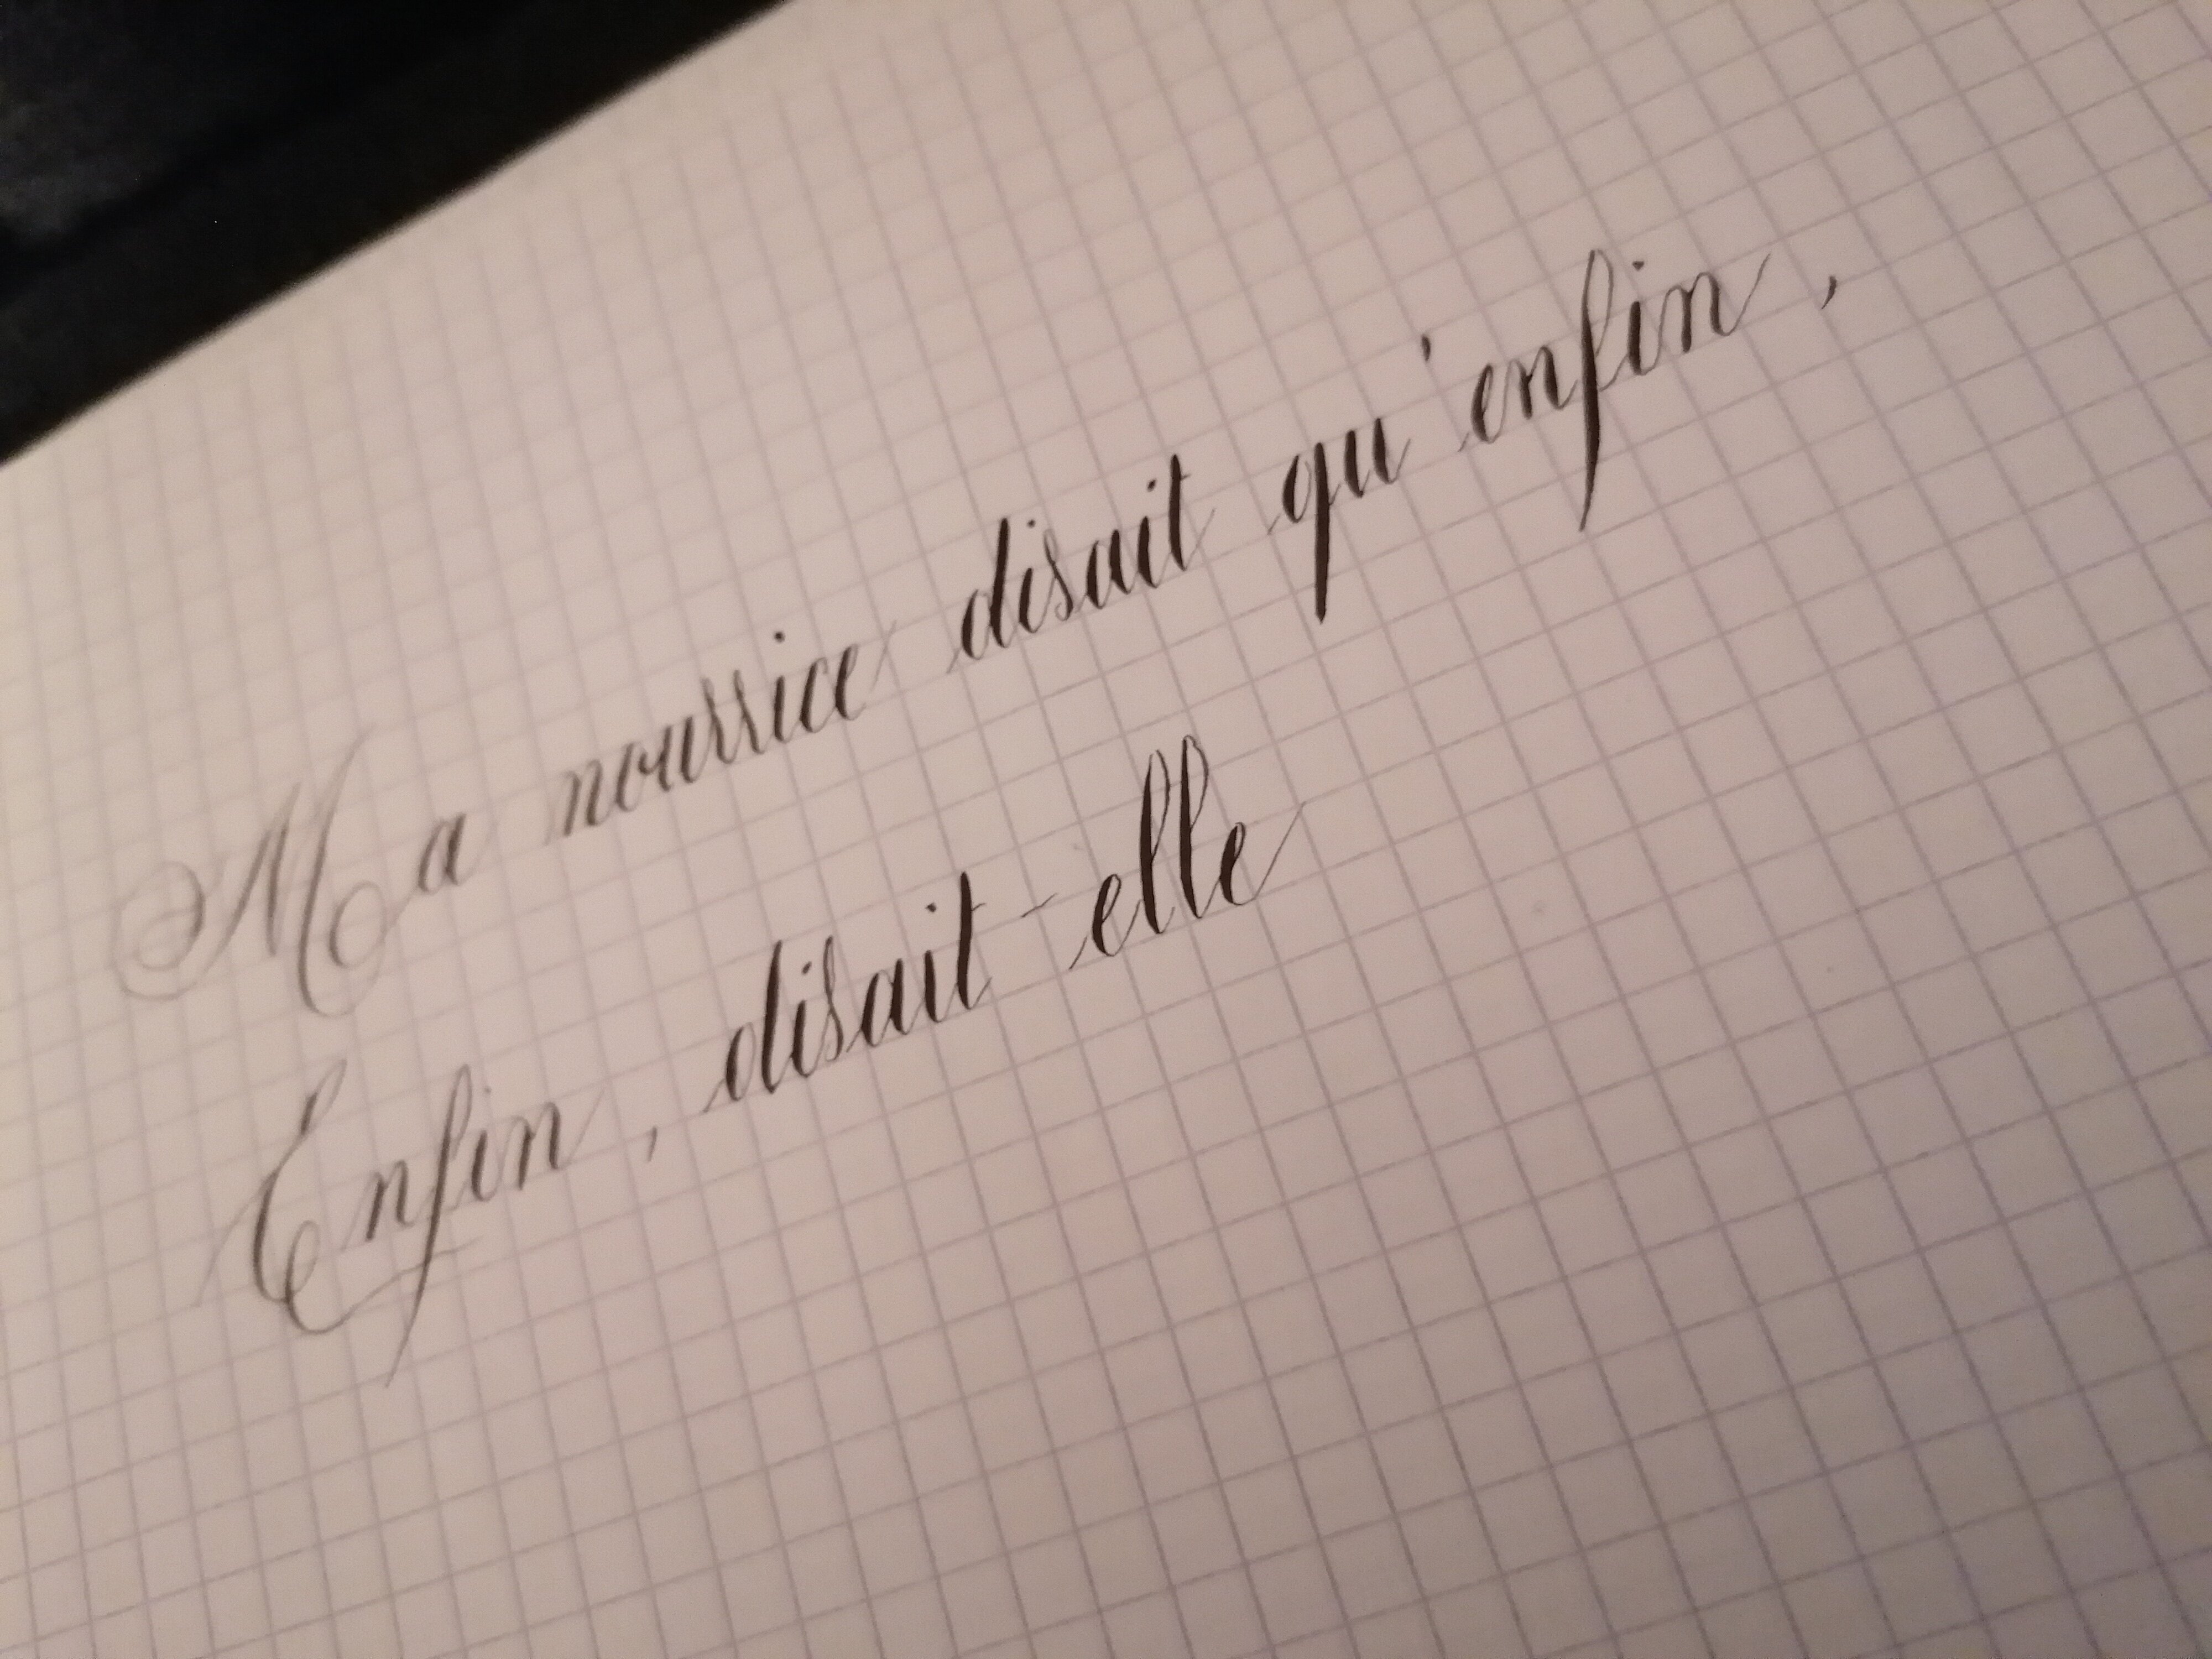 Ma nourrice disait qu'enfin,
Enfin, disait-elle